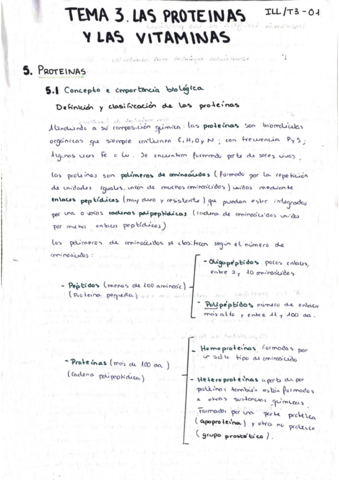 TEMA 3. LAS PROTEINAS ILL/T3-01
Y LAS VITAMINAS
5. PROTEINAS
5.1 Concepto e importancia biológica
Definición y clasificación de las proteínas
Atendiendo a su composición química: las proteínas son biomoléculas
orgánicas que siempre contienen C, H, O y N; con frecuencia P y S;
Algunas veces Fe o Cu. Se encuentran formando parte de seres vivos.
Las proteínas son polímeros de aminoácidos (formado por la repetición
de unidades iguales, unión de muchos aminoácidos) unidos mediante
enlaces peptídicos (muy duro y resistente) que pueden estar integrados
por una o varias cadenas polipeptídicas (cadena de aminoácidos unidos
por muchos enlaces peptídicos)
Los polímeros de aminoácidos se clasifican según el número de
aminoácidos:
- Oligopéptidos: pocos enlaces,
entre 2 y 10 aminoácidos
- Péptidos (menos de 100 aminoác)
(Proteína pequeña)
- Polipéptidos número de enlaces
más alto y entre 11 y 100 aa.
- Homoproteínas formadas por
un solo tipo de aminoácido
- Proteínas (más de 100 aa.)
(cadena polipeptídica)
- Heteroproteínas aparte de por
proteínas también están formadas
x otras sustancias químicas
Formadas por una parte proteica
(apoproteína) y otra no proteica
(grupo prostético).